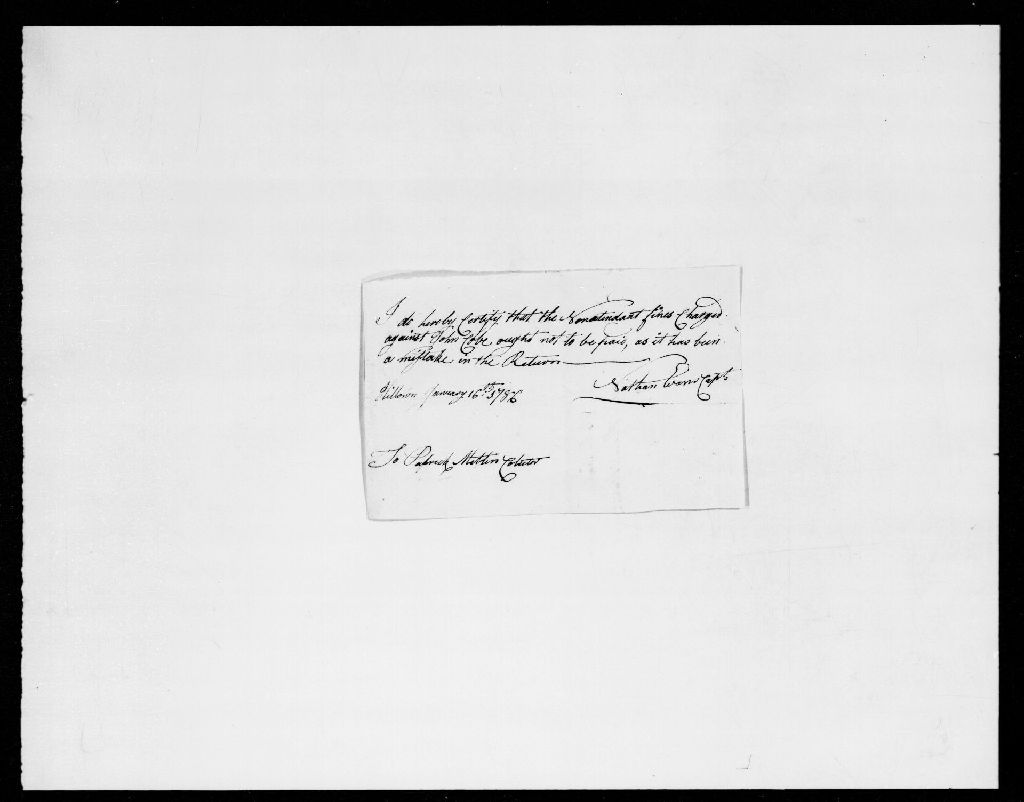 I do hereby Certify that the Nonattendant fines Charged
against John Cobe, ought not to be paid, as it has been
a mistake in the Return
Nathan Evans Capt
Hilltown January 16th 1786
To Patrick Mcttin Colector